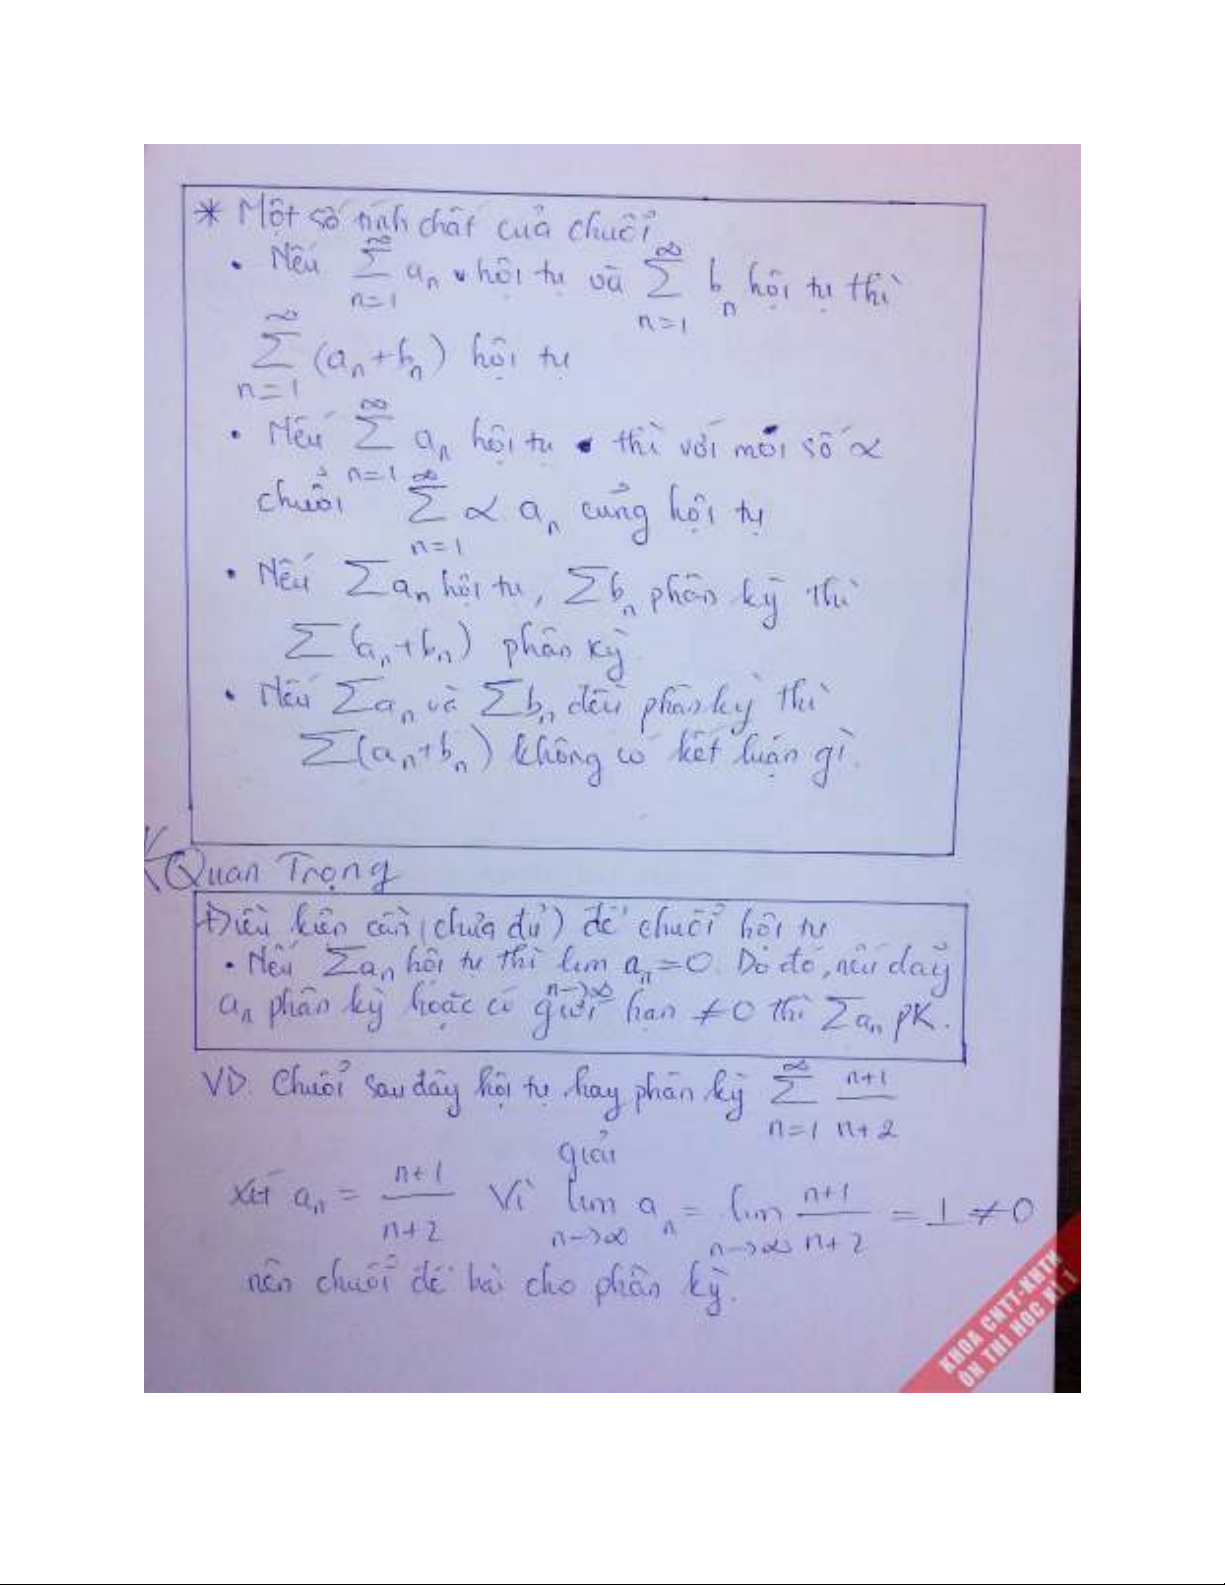 * Một số tính chất của chuỗi
• Nếu ∑_{n=1}^{∞} a_n hội tụ và ∑_{n=1}^{∞} b_n hội tụ thì
∑_{n=1}^{∞} (a_n + b_n) hội tụ
• Nếu ∑_{n=1}^{∞} a_n hội tụ thì với mỗi số α
chuỗi ∑_{n=1}^{∞} α a_n cũng hội tụ
• Nếu ∑a_n hội tụ, ∑b_n phân kỳ thì
∑(a_n + b_n) phân kỳ
• Nếu ∑a_n và ∑b_n đều phân kỳ thì
∑(a_n + b_n) không có kết luận gì.
Quan Trọng
Điều kiện cần (chưa đủ) để chuỗi hội tụ
• Nếu ∑a_n hội tụ thì lim_{n→∞} a_n = 0. Do đó, nếu dãy
a_n phân kỳ hoặc có giới hạn ≠ 0 thì ∑a_n pK.
VD. Chuỗi sau đây hội tụ hay phân kỳ ∑_{n=1}^{∞} (n+1)/(n+2)
giải
xét a_n = (n+1)/(n+2) Vì lim_{n→∞} a_n = lim_{n→∞} (n+1)/(n+2) = 1 ≠ 0
nên chuỗi đề bài cho phân kỳ.
KHOA CNTT-KHTN
ON THI HOC KI 1